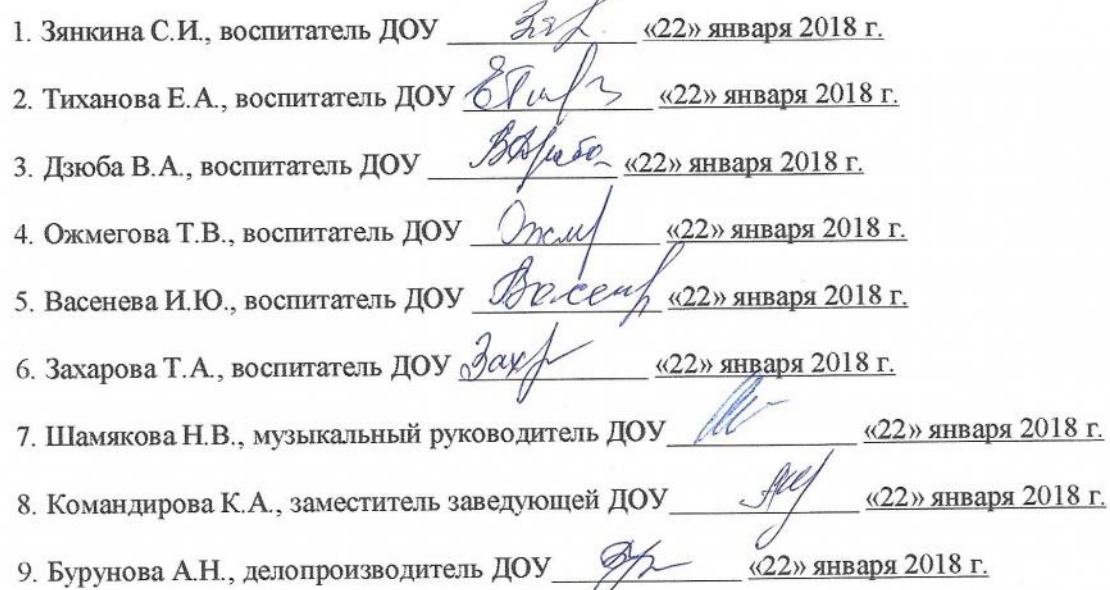 1. Зянкина С.И., воспитатель ДОУ «22» января 2018 г.
2. Тиханова Е.А., воспитатель ДОУ «22» января 2018 г.
3. Дзюба В.А., воспитатель ДОУ «22» января 2018 г.
4. Ожмегова Т.В., воспитатель ДОУ «22» января 2018 г.
5. Васенева И.Ю., воспитатель ДОУ «22» января 2018 г.
6. Захарова Т.А., воспитатель ДОУ «22» января 2018 г.
7. Шамякова Н.В., музыкальный руководитель ДОУ «22» января 2018 г.
8. Командирова К.А., заместитель заведующей ДОУ «22» января 2018 г.
9. Бурунова А.Н., делопроизводитель ДОУ «22» января 2018 г.